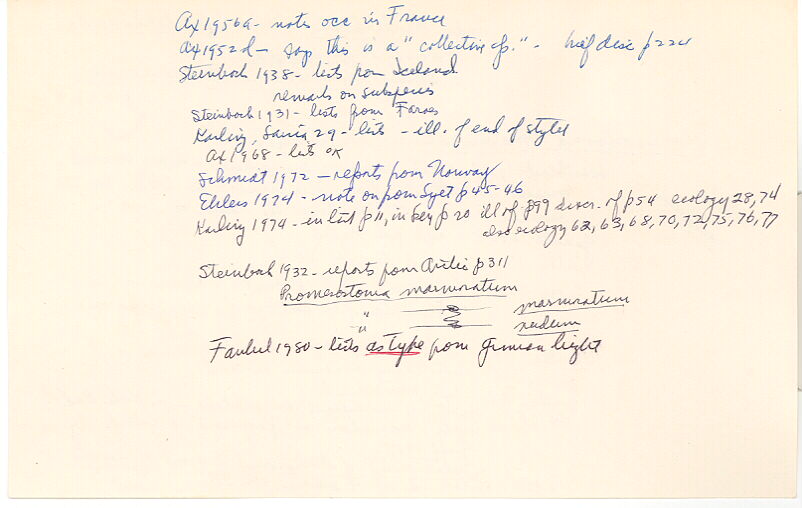 Ax 1956a - notes occ in France
Ax 1952d - says this is a "collective sp." - brief disc p 224
Steinböck 1938 - lists from Iceland
remarks on subspecies
Steinböck 1931 - lists from Faroes
Karling, Suomia 29 - lists - ill. of end of stylet
Ax 1968 - lists OK
Schmidt 1972 - reports from Norway
Ehlers 1974 - note on from Sylt p 45-46
Karling 1974 - in list p 11, in key p 20 ill of p 99 discr. of p 54 ecology 28, 74
also ecology 62, 63, 68, 70, 72, 75, 76, 77
Steinböck 1932 - reports from Arctic p 311
Promesostoma marmoratum
" marmoratum
" nudum
1980 - lists as type from German bight